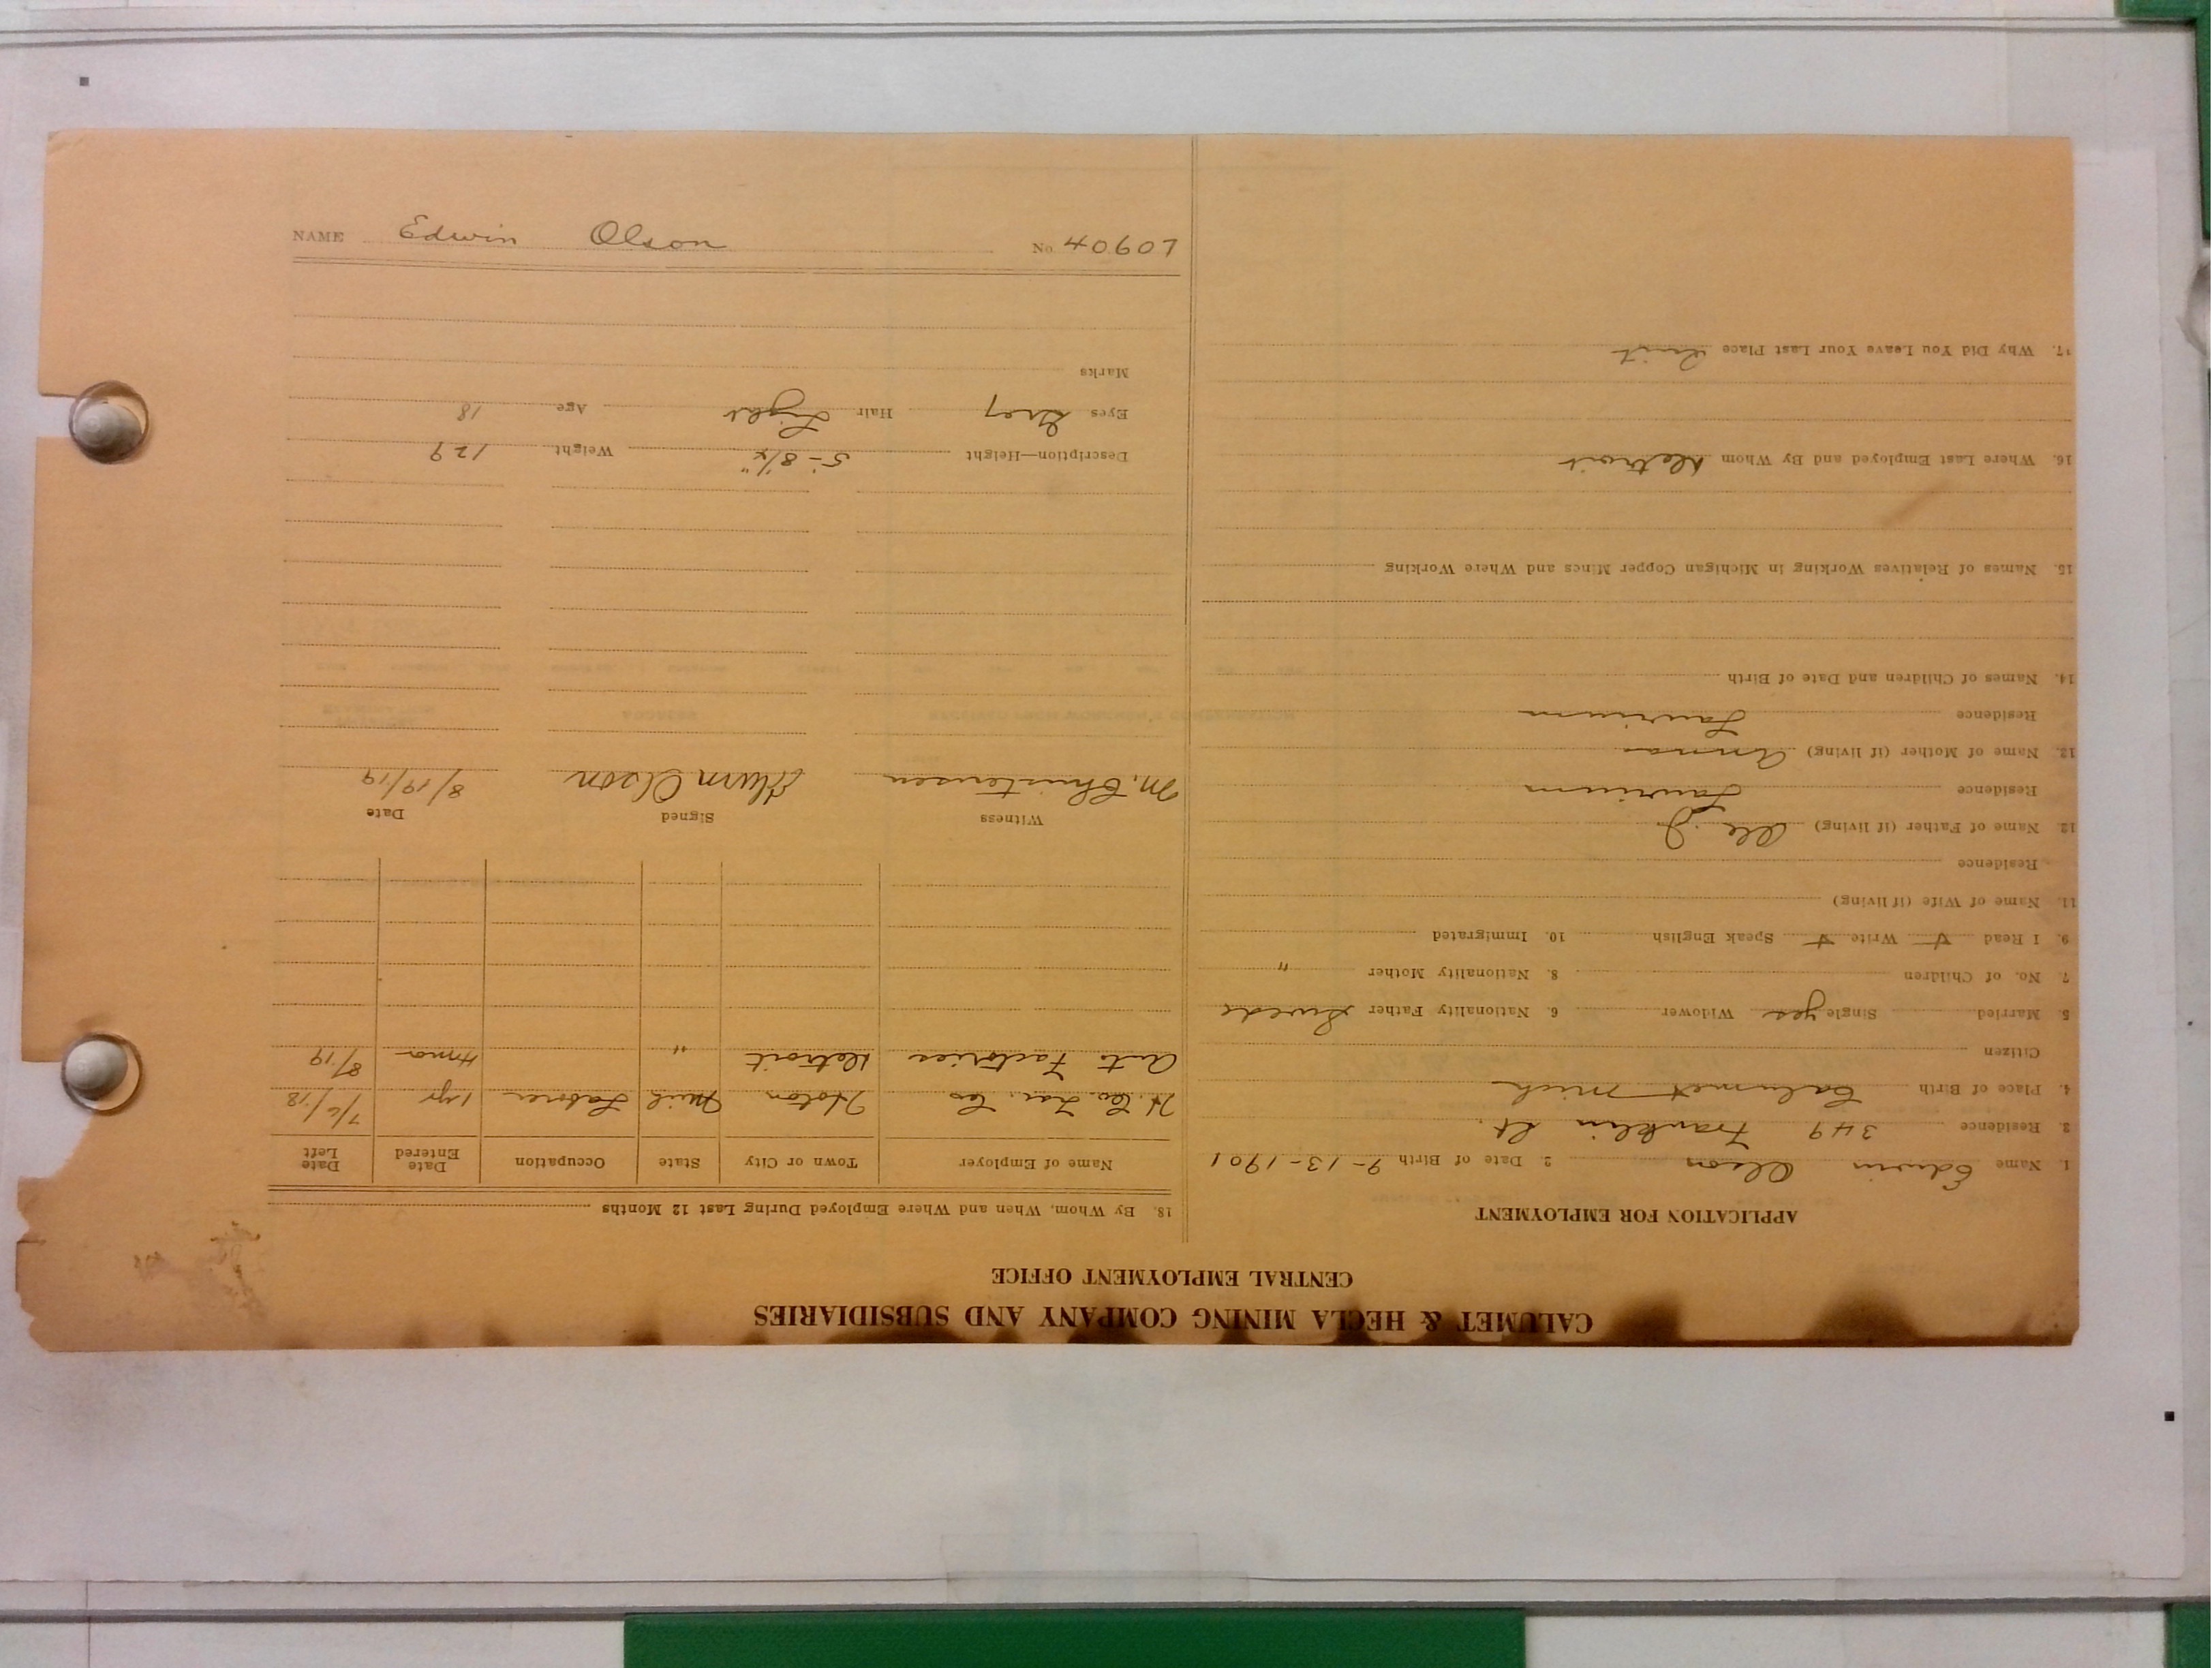 CALUMET & HECLA MINING COMPANY AND SUBSIDIARIES
CENTRAL EMPLOYMENT OFFICE
APPLICATION FOR EMPLOYMENT
1. Name Edwin Olson 2. Date of Birth 9-13-1901
3. Residence 349 Franklin St.
4. Place of Birth Calumet Mich
Citizen
5. Married Single yes Widower 6. Nationality Father Swede
7. No. of Children 8. Nationality Mother "
9. I Read Write Speak English 10. Immigrated
11. Name of Wife (if living)
Residence
12. Name of Father (if living) Ole J.
Residence Laurium
13. Name of Mother (if living) Anna
Residence Laurium
14. Names of Children and Date of Birth
15. Names of Relatives Working in Michigan Copper Mines and Where Working
16. Where Last Employed and By Whom Detroit
17. Why Did You Leave Your Last Place Quit
18. By Whom, When and Where Employed During Last 12 Months
Name of Employer Town or City State Occupation Date Entered Date Left
H. Co. Trac. Co Hoton Mich Laborer 1 yr 7/6/18
Auto Factories Detroit " 4 mo 8/19
Witness Signed Date
M. Christensen Edwin Olson 8/19/19
Description—Height 5'-8 1/4" Weight 129
Eyes Grey Hair Light Age 18
Marks
NAME Edwin Olson No. 40607